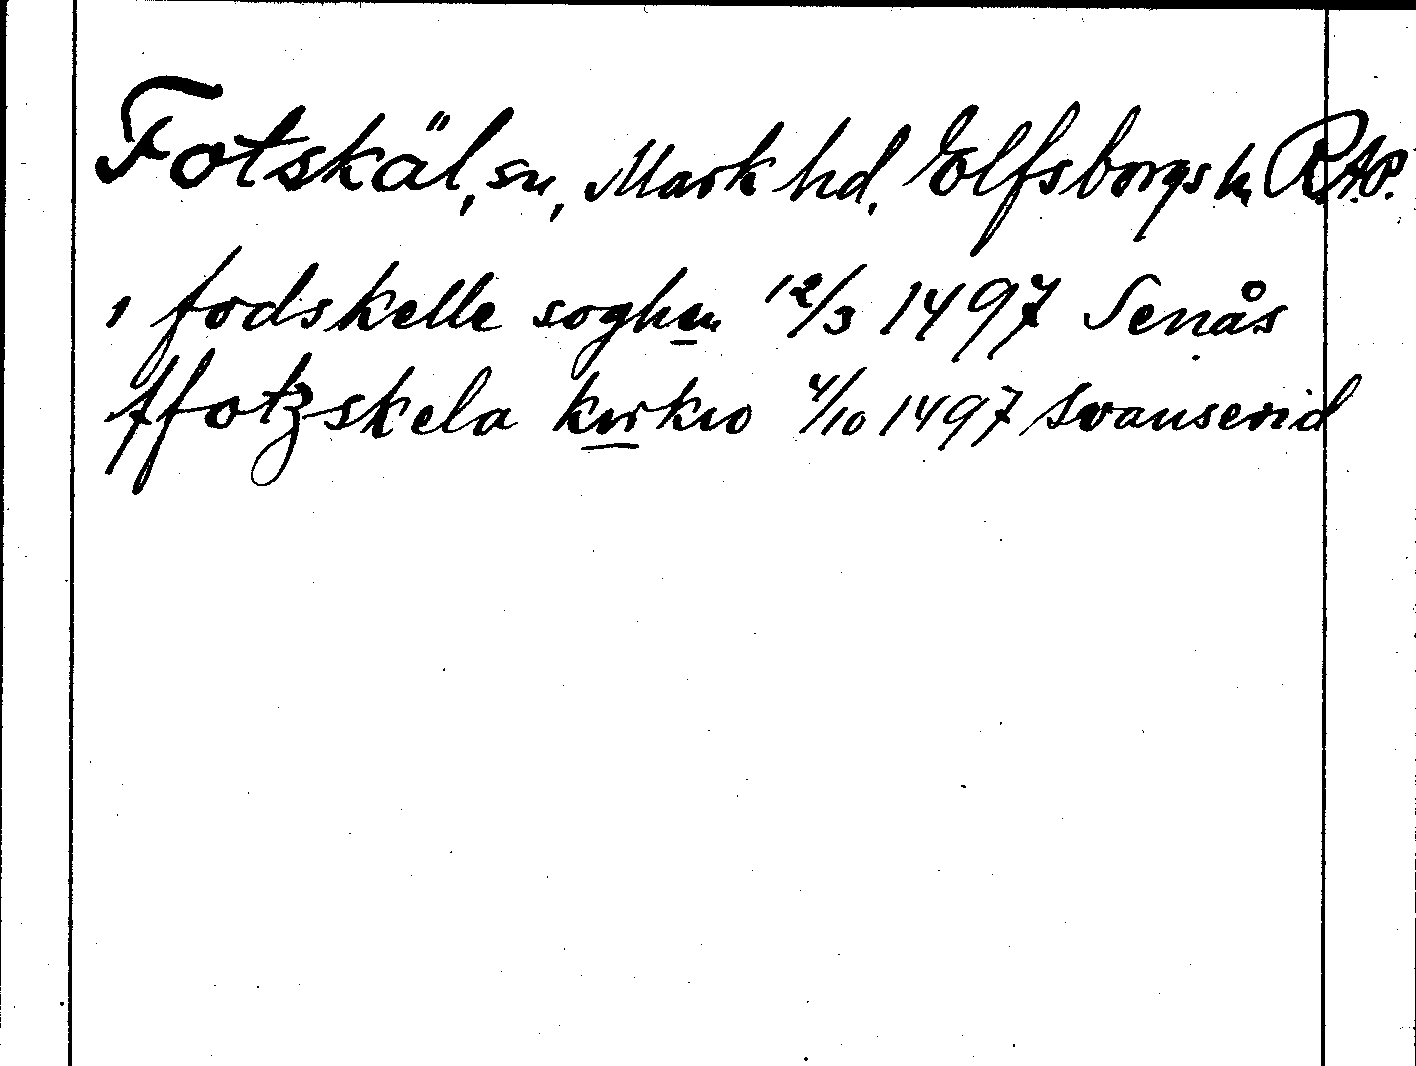 Fotskäl, sn, Mark hd, Elfsborgs l. RAP.
i fodskelle soghn 12/3 1497 Senås
ffotzskela kirkio 4/10 1497 Svanserid